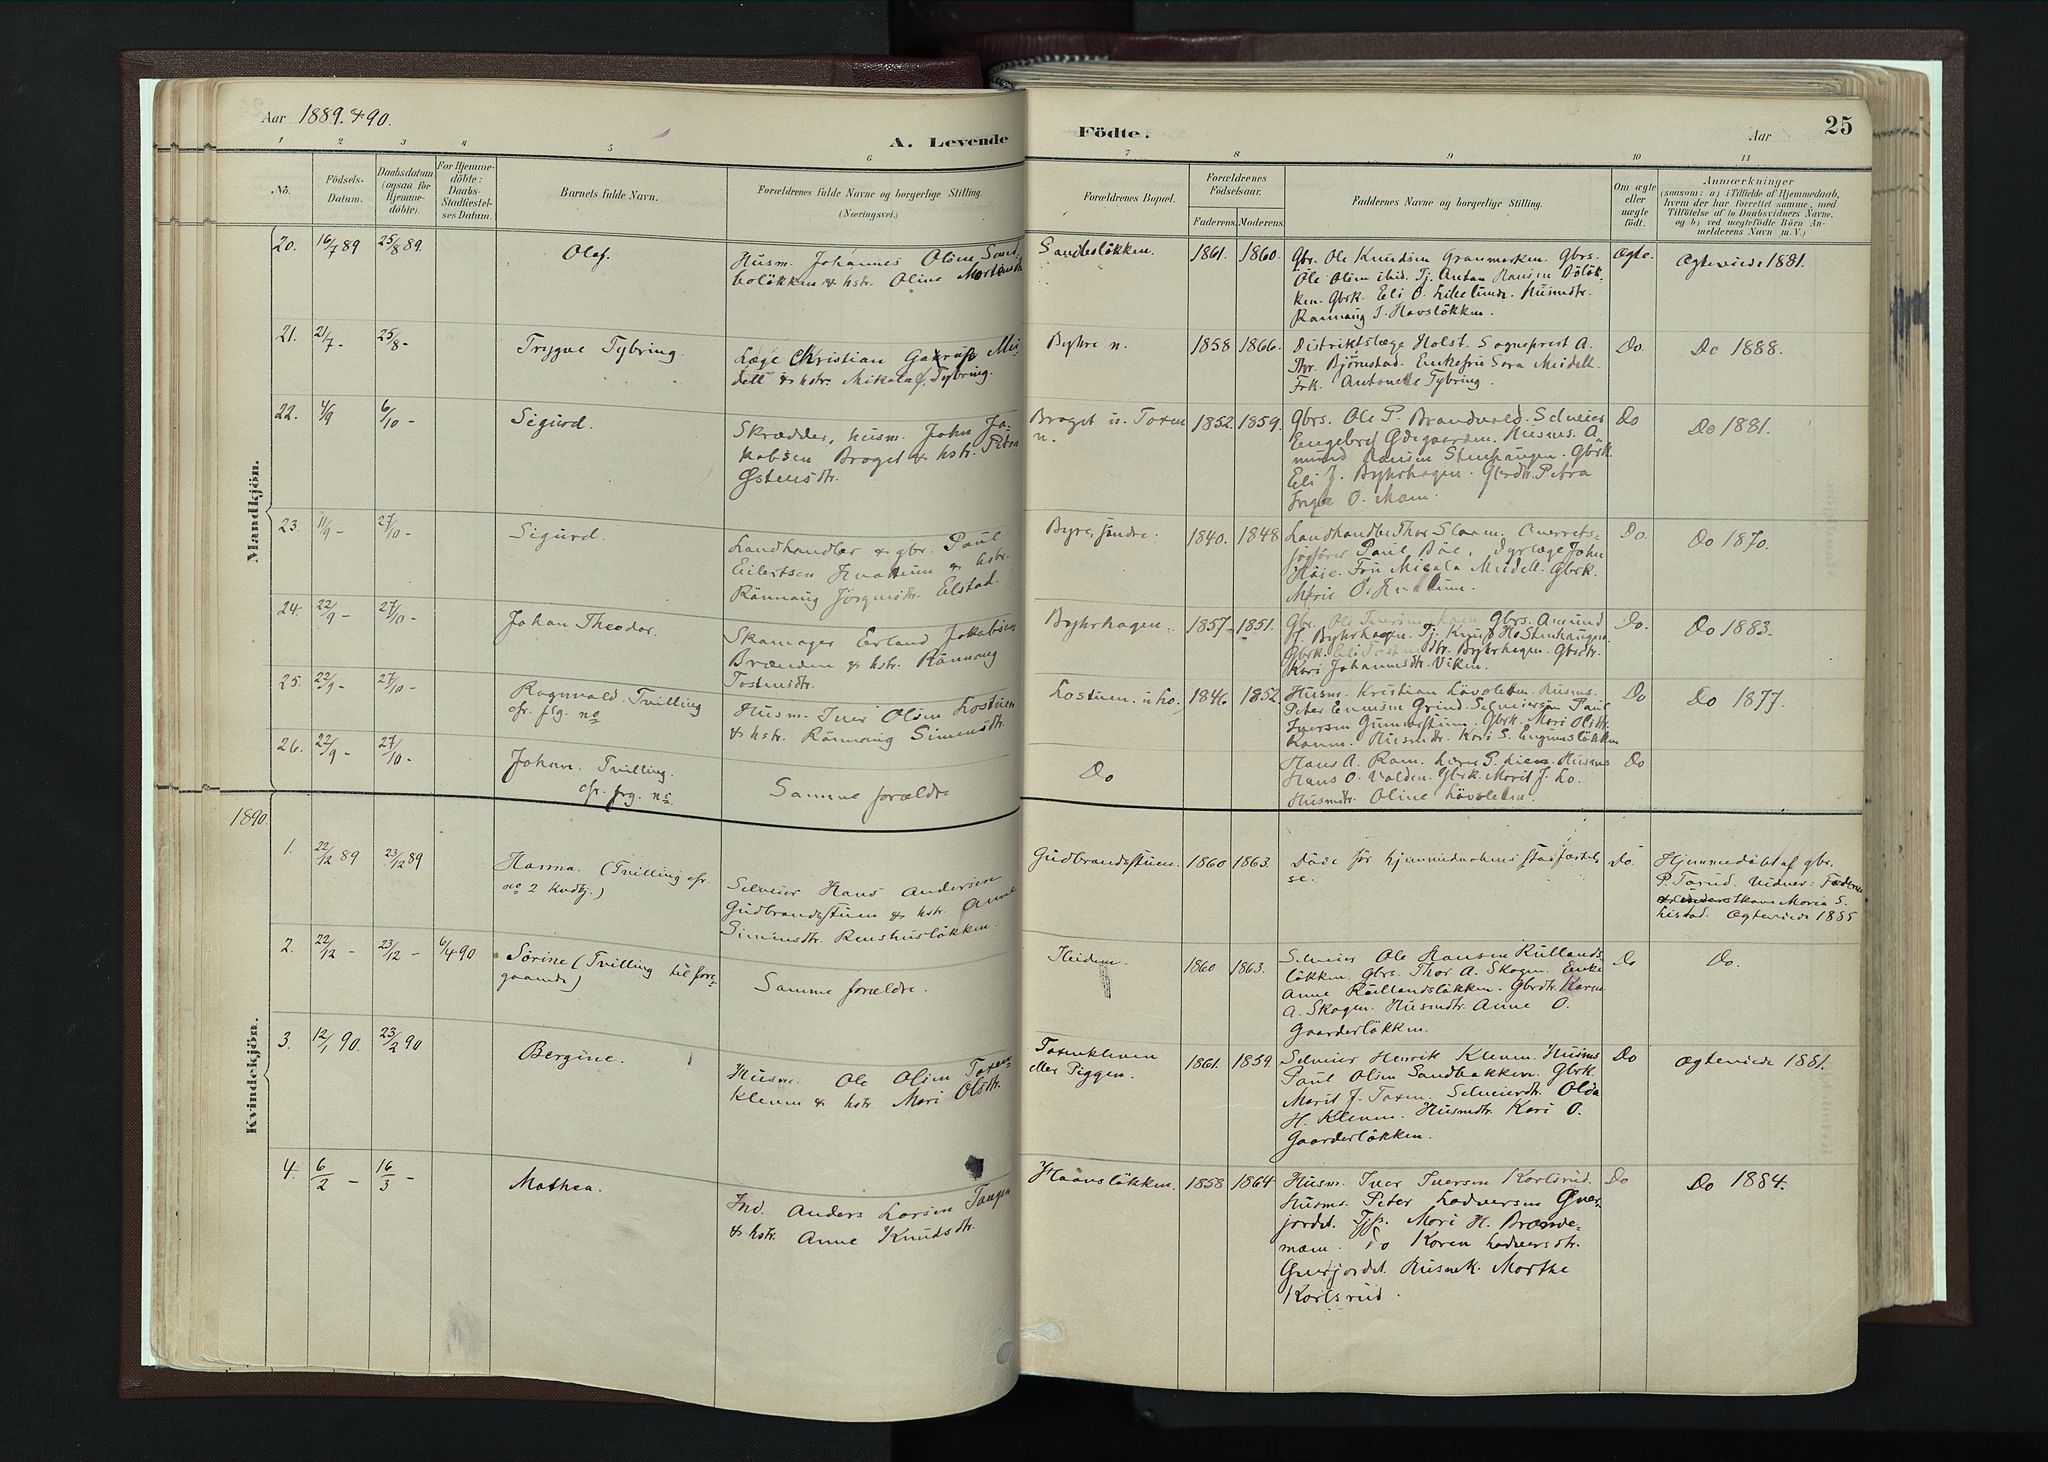 Aar 1889. & 90.
A. Levende
Födte.
Aar
25
1 2 3 4 5 6
7 8 9 10 11
No.
Födsels-Datum.
Daabsdatum (ogsaa for Hjemme-döbte).
For Hjemme-döbte: Daabs-Stadfæstel-ses Datum.
Barnets fulde Navn.
Forældrenes fulde Navne og borgerlige Stilling.
(Næringsvei.)
Forældrenes Bopæl.
Forældrenes Födselsaar.
Faderens. Moderens.
Faddernes Navne og borgerlige Stilling.
Om ægte eller uægte födt.
Anmærkninger
(saasom: a) i Tilfælde af Hjemmedaab, hvem der har forrettet samme, med Tilföielse af to Daabsvidners Navne, og b) ved uægtefödte Börn Anmelderens Navn m. V.)
Mandkjön.
20. 16/7 89 25/8 89. Olaf.
Husm. Johannes Olsen Sand-
boløkken & hstr. Oline Mortensdtr.
Sandboløkken. 1861. 1860.
Gbr. Ole Knudsen Granmorken. Gbrs.
Ole Olsen ibid. Tj. Anton Hansen
ken. Gbrk. Eli O. Lillelunde. Husmdtr.
Rannaug I. Havsløkken.
Ægte. Ægteviede 1881.
21. 21/7 - 25/8 - Trygve Tybring.
Læge Christian Mei-
dell & hstr. Mikala Tybring.
Byhre n. 1858 1866.
Distriktslæge Holst. Sogneprest A.
Thr. Bjørnstad. Enkefru Sara Meidell.
Frk. Antonette Tybring.
Do. Do 1888.
22. 4/9 6/10 - Sigurd.
Skrædder, husm. John Ja-
kobsen Broget & hstr. Petra
Østensdtr.
Broget u. Toxen
n. 1852. 1859.
Gbrs. Ole P. Brandvold. Selveier
Engebret Ødegaarden. Husms. A-
mund Hansen Stenhaugen. Gbrk.
Eli J. Byhrhagen. Gbrdtr. Petra
Inga O. Moen.
Do Do 1881.
23. 11/9 - 27/10 - Sigurd.
Landhandler & gbr. Paul
Eilertsen & hstr.
Rønnaug Jørgensdtr. Elstad.
Byre, søndre. 1840. 1848
Landhandler Thor Staum. Overrets-
sagfører Paul Boe, Dyrlæge John
Høie. Fru Micala Meidell. Gbrk.
Marie O.
Do. Do 1870.
24. 22/9 - 27/10 - Johan Theodor.
Skomager Erland Jakobsen
Brænden & hstr. Rønnaug
Tostensdtr.
Byhrhagen. 1857 - 1851.
Gbr. Ole Iversen Gbrs. Amund
J. Byhrhagen. Tj. Knud H. Stenhaugen.
Gbrk. Eli Byhrhagen. Gbrdtr.
Kari Johannesdtr. Viken.
Do. Do 1883.
25. 22/9 - 27/10 - Ragnvald. Tvilling
cfr. flg. no
Husm. Iver Olsen Lostuen
& hstr. Rønnaug Simensdtr.
Lostuen. u Lo. 1846 1852.
Husm. Kristian Løvsletten. Husms.
Peter Evensen Grind. Selveiersøn Paul
Iversen Gunnerstuen. Gbrk. Mari Olsdtr.
Ramm. Husmdtr. Kari S. Engumsløkken
Do Do 1877.
26. 22/9 - 27/10 - Johan. Tvilling.
cfr. frg. no.
Samme forældre
Do
Hans A. Ram. Lars P. Lien. Husms
Hans O. Volden. Gbrk. Marit J. Lo.
Husmdtr. Oline Løvsletten.
Do
1890.
Kvindekjön.
1. 22/12 89 23/12 89 Hanna. (Tvilling cfr.
no 2 kvdkj.)
Selveier Hans Andersen
Gudbrandsstuen & hstr. Anne
Simensdtr. Renshusløkken.
Gudbrandsstuen. 1860 1863.
Døde før hjemmedaabens stadfæstel-
se.
Do. Hjemmedøbt af gbr.
P. Torud. Vidner: Faderen
Maria S.
Listad. Ægteviede 1885
2. 22/12 - 23/12 - 6/4 90 Sørine (Tvilling til fore-
gaaende)
Samme forældre.
Heidem. 1860 1863.
Selveier Ole Hansen Rullands-
løkken. Gbrs. Thor A. Skogen. Enke
Anne Rullandsløkken. Gbrdtr. Karen
A. Skogen. Husmdtr. Anne O.
Gaarderløkken.
Do Do.
3. 12/1 90. 23/2 90 Bergine.
Husm. Ole Olsen Toxen-
kleven & hstr. Mari Olsdtr.
Toxenkleven
eller Piggen. 1861. 1859.
Selveier Henrik Kleven. Husms
Paul Olsen Sandbakken. Gbrk.
Marit J. Toxen. Selveierdtr. Olda
H. Kleven. Husmdtr. Kari O.
Gaarderløkken.
Do Ægteviede 1881.
4. 6/2 - 16/3 - Mathea.
Ind. Anders Larsen Taugen
& hstr. Anne Knudsdtr.
Haavsløkken. 1858 1864
Husm. Iver Iversen Karlsrud.
Husms. Peter Ladversen Gver-
jordet. Tjp. Mari H. Brænde-
moen. Do Karen Ladversdtr.
Gverjordet. Husmk. Marthe
Karlsrud.
Do Do 1884.